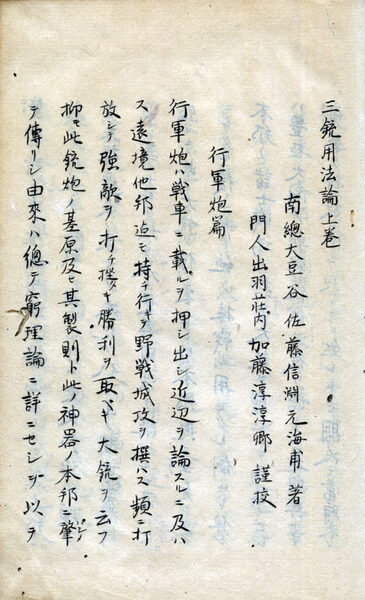 三銃用法論上巻
南總大豆谷 佐藤信淵元海甫 著
門人出羽荘内 加藤淳淳卿 謹校
行軍炮篇
行軍炮ハ戦車ニ載ルヲ押シ出シ近辺ヲ論スルニ及ハ
ス遠境他邦迠モ持チ行キテ野戦城攻ヲ撰ハス頻ニ打
放シテ強敵ヲ打チ挫キ勝利ヲ取ベキ大銃ヲ云フ
抑モ此銃炮ノ基原及ヒ其製則ト此ノ神器ノ本邦ニ肇
テ傳リシ由來ハ總テ窮理論ニ詳ニセシヲ以テ